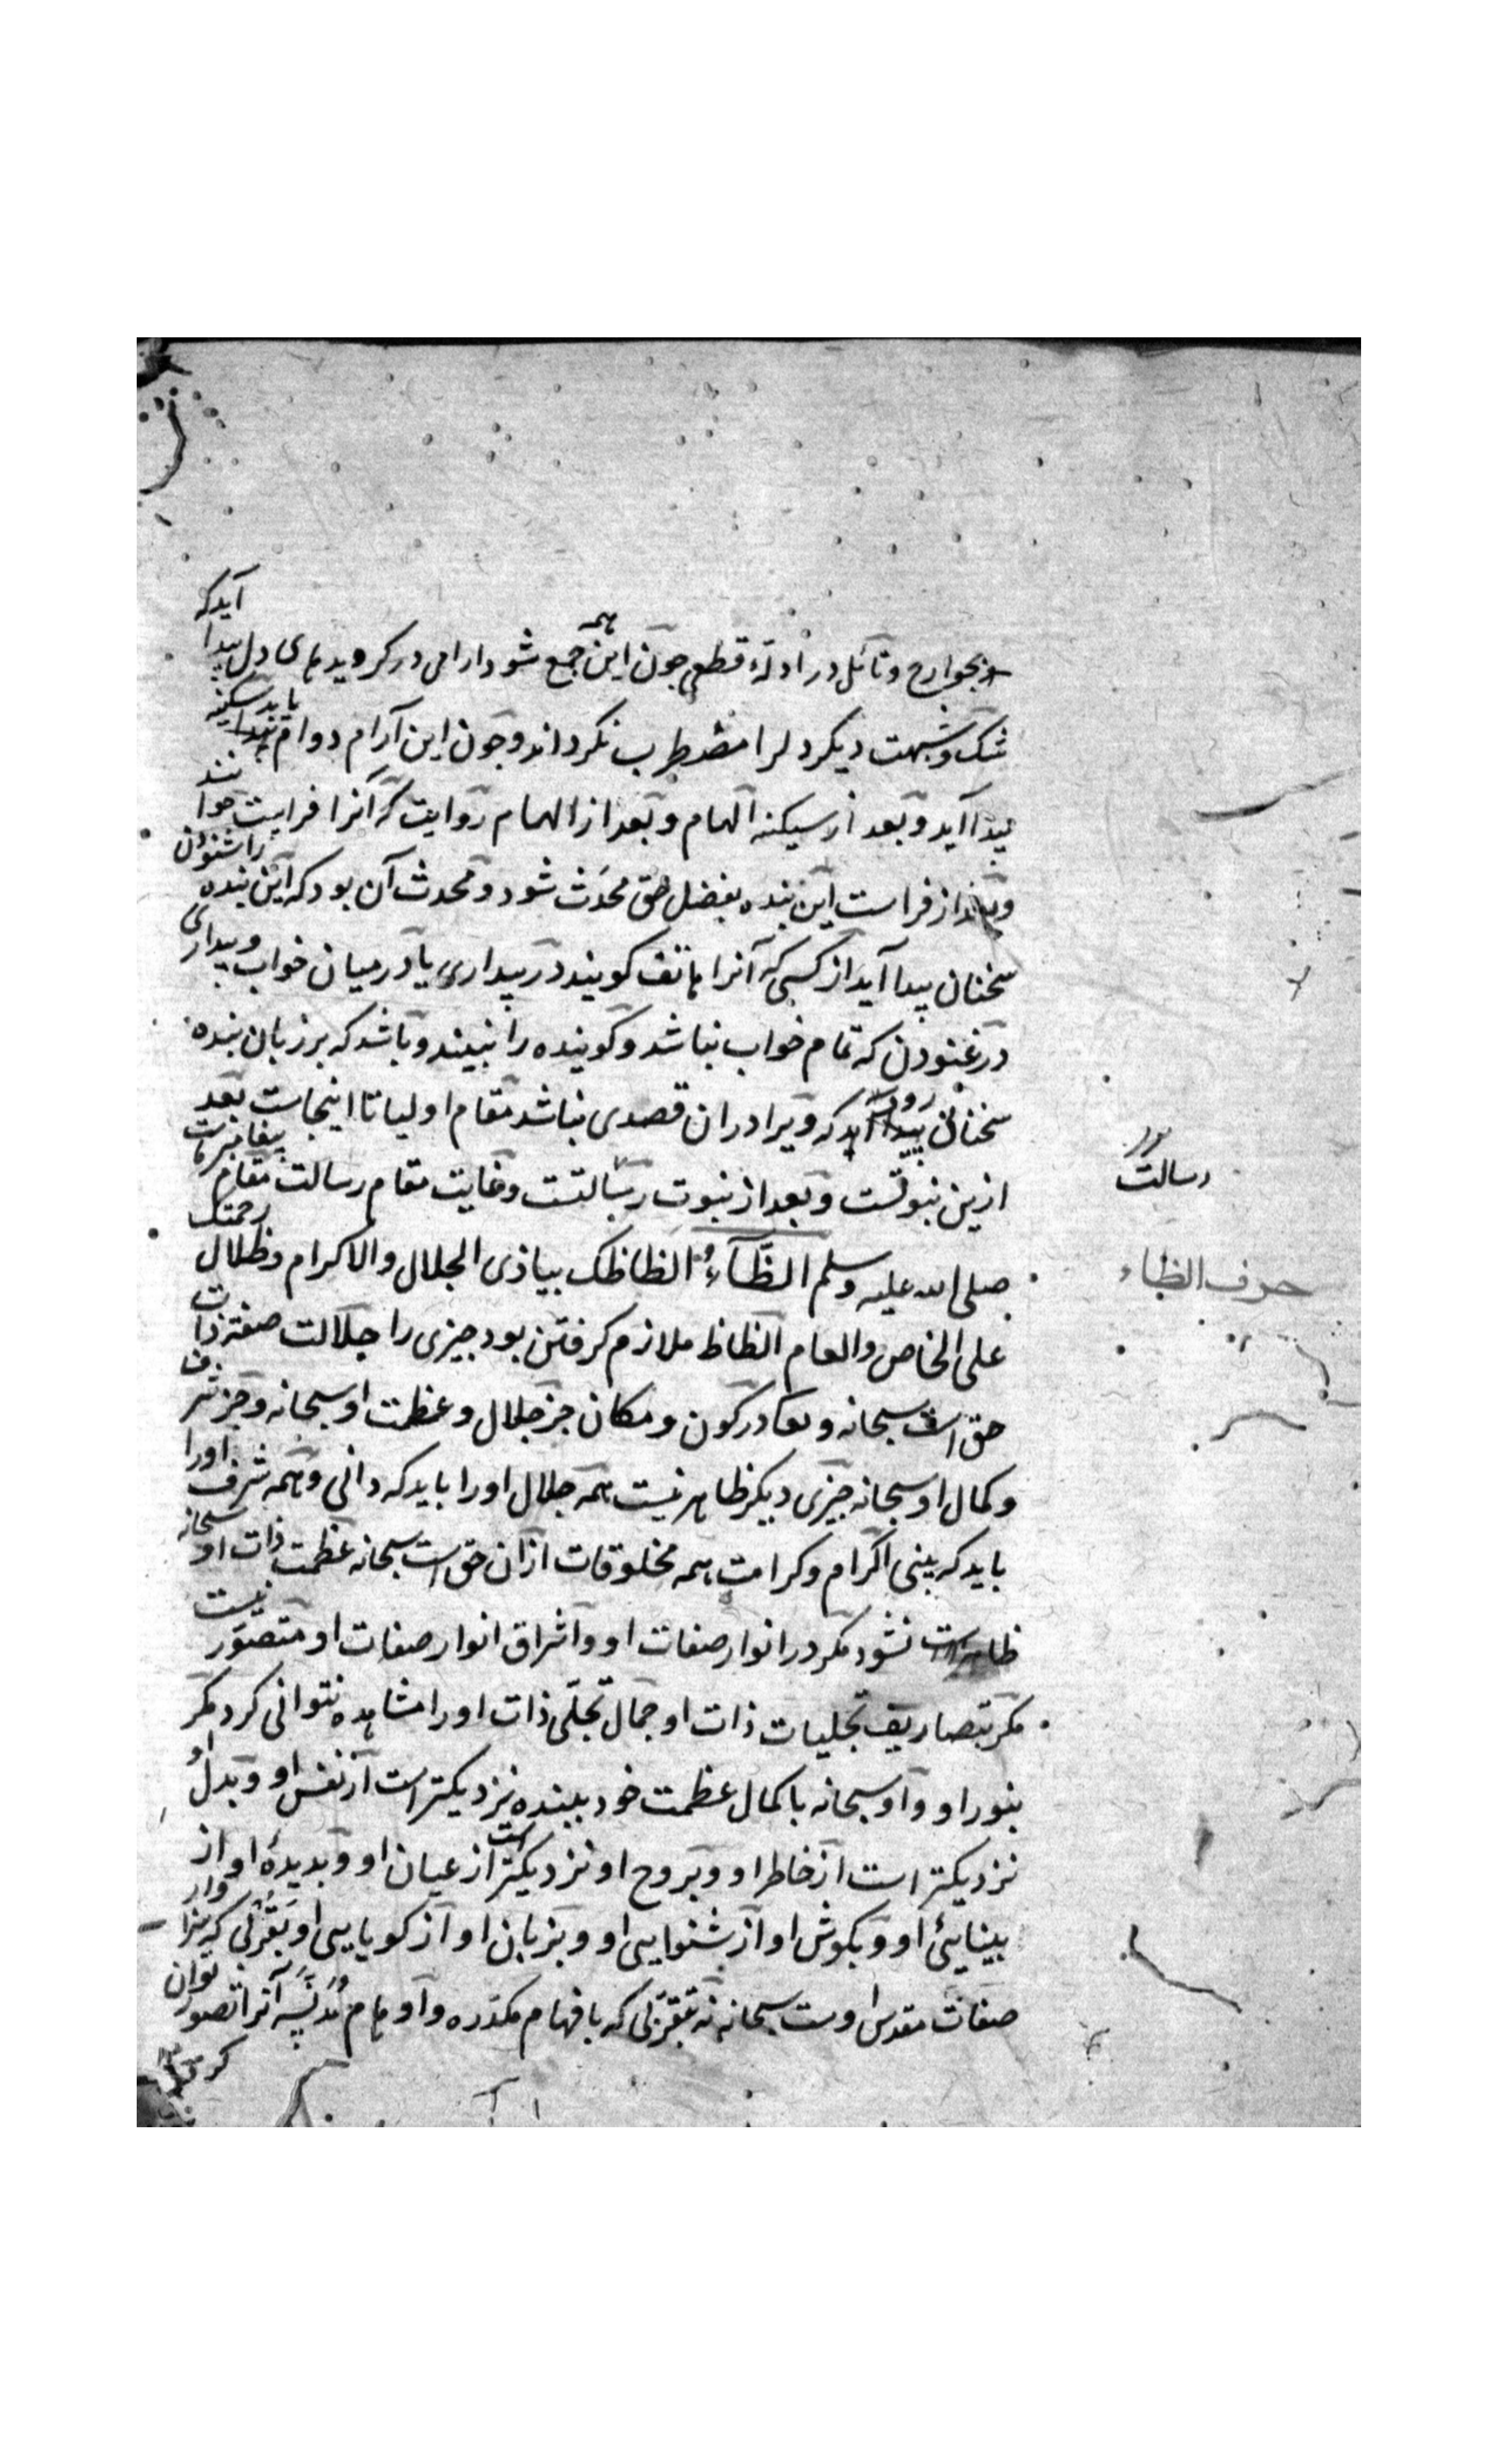 بجوارح و تأمل در ادلهٔ قطعی چون این همه جمع شود ارامی در کرویدهای دل پیدا آید که
شک و شبهت دیکر دل را مضطرب نکرداند و چون این آرام دوام یابد سکینه
پیدا آید و بعد از سکینه الهام و بعد از الهام روایت که آنرا فراست خوانند
و بعد از فراست این بنده بفضل حق محدَث شود و محدث آن بود که این بنده را شنودن
سخنان پیدا آید از کسی که آنرا هاتف کویند در بیداری یا در میان خواب و بیداری
در غنودن که تمام خواب نباشد و کوینده را نبیند و باشد که بر زبان بنده
سخنان رود که ویرا در ان قصدی نباشد مقام اولیا تا اینجاست بعد
ازین نبوتست و بعد از نبوت رسالتست و غایت مقام رسالت مقام پیغامبر ماست
رسالت
صلی الله علیه وسلم الظَّآءُ الظاظک بیاذی الجلال والاکرام وظلال رحمتک
حرف الظاء
علی الخاص والعام الظاظ ملازم کرفتن بود چیزی را جلالت صفت ذات
حق است سبحانه و تعا در کون و مکان جز جلال و عظمت او سبحانه و جز شرف
و کمال او سبحانه چیزی دیکر ظاهر نیست همه جلال او را باید که دانی و همه شرف او را
باید که بینی اکرام و کرامت همه مخلوقات از آن حق است سبحانه عظمت ذات او سبحانه
ظاهر نشود مکر در انوار صفات او و اشراق انوار صفات او متصوَر نیست
مکر بتصاریف تجلیات ذات او جمال تجلّی ذات او را مشاهده نتوانی کرد مکر
بنور او و او سبحانه با کمال عظمت خود ببنده نزدیکتر است از نفس او و بدل او
نزدیکتر است از خاطر او و بروح او نزدیکتر است از عیان او و بدیدهٔ او از
بینایئ او و بکوش او از شنوایی او و بزبان او از کویایی او بقُربی که سزاوار
صفات مقدس اوست سبحانه نه بقربی که بافهام مکدره و اوهام مُدنَّسه آنرا تصور توان
کرد